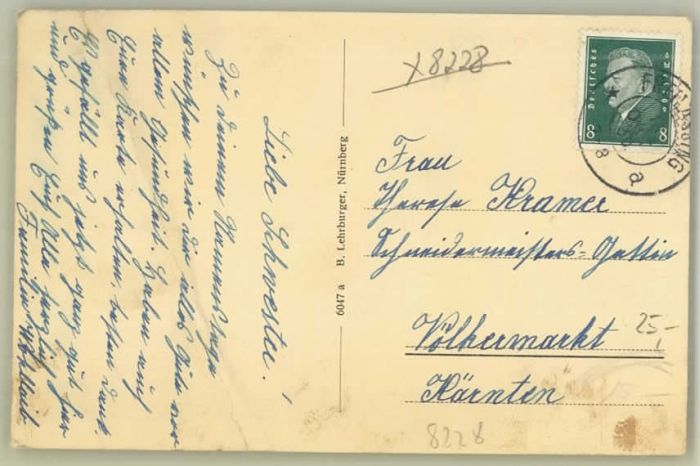 Liebe Schwester!
Zu Deinem Namenstage
wünschen wir Dir alles Gute vor
allem Gesundheit. Haben auch
Eure Karte erhalten, besten Dank.
Es gefällt uns jetzt ganz gut hier
und grüßen Euch Alle herzlich
Familie
6047 a B. Lehrburger, Nürnberg
x8228
DEUTSCHES REICH
8 8
a
8
Frau
Therese Kramer
Schneidermeisters-Gattin
Völkermarkt
Kärnten
25-
8228